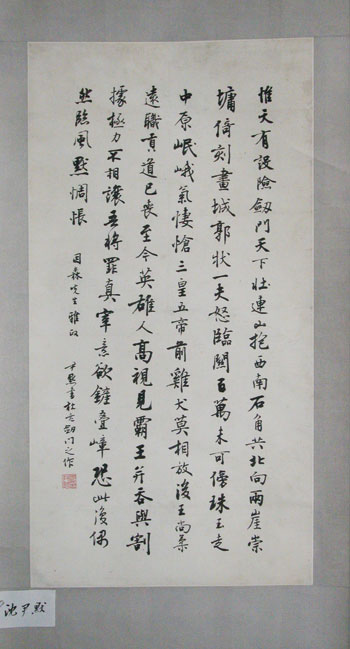 惟天有設險劒門天下壯連山抱西南石角共北向兩崖崇
墉倚刻畫城郭狀一夫怒臨關百萬未可傍珠玉走
中原岷峨氣悽愴三皇五帝前雞犬莫相放後王尚柔
遠職貢道已喪至今英雄人高視見霸王并吞與割
據極力不相讓吾將罪真宰意欲鏟疊嶂恐此復偶
然臨風默惆悵 因森先生雅政
尹默書杜公劒門之作
沈尹默